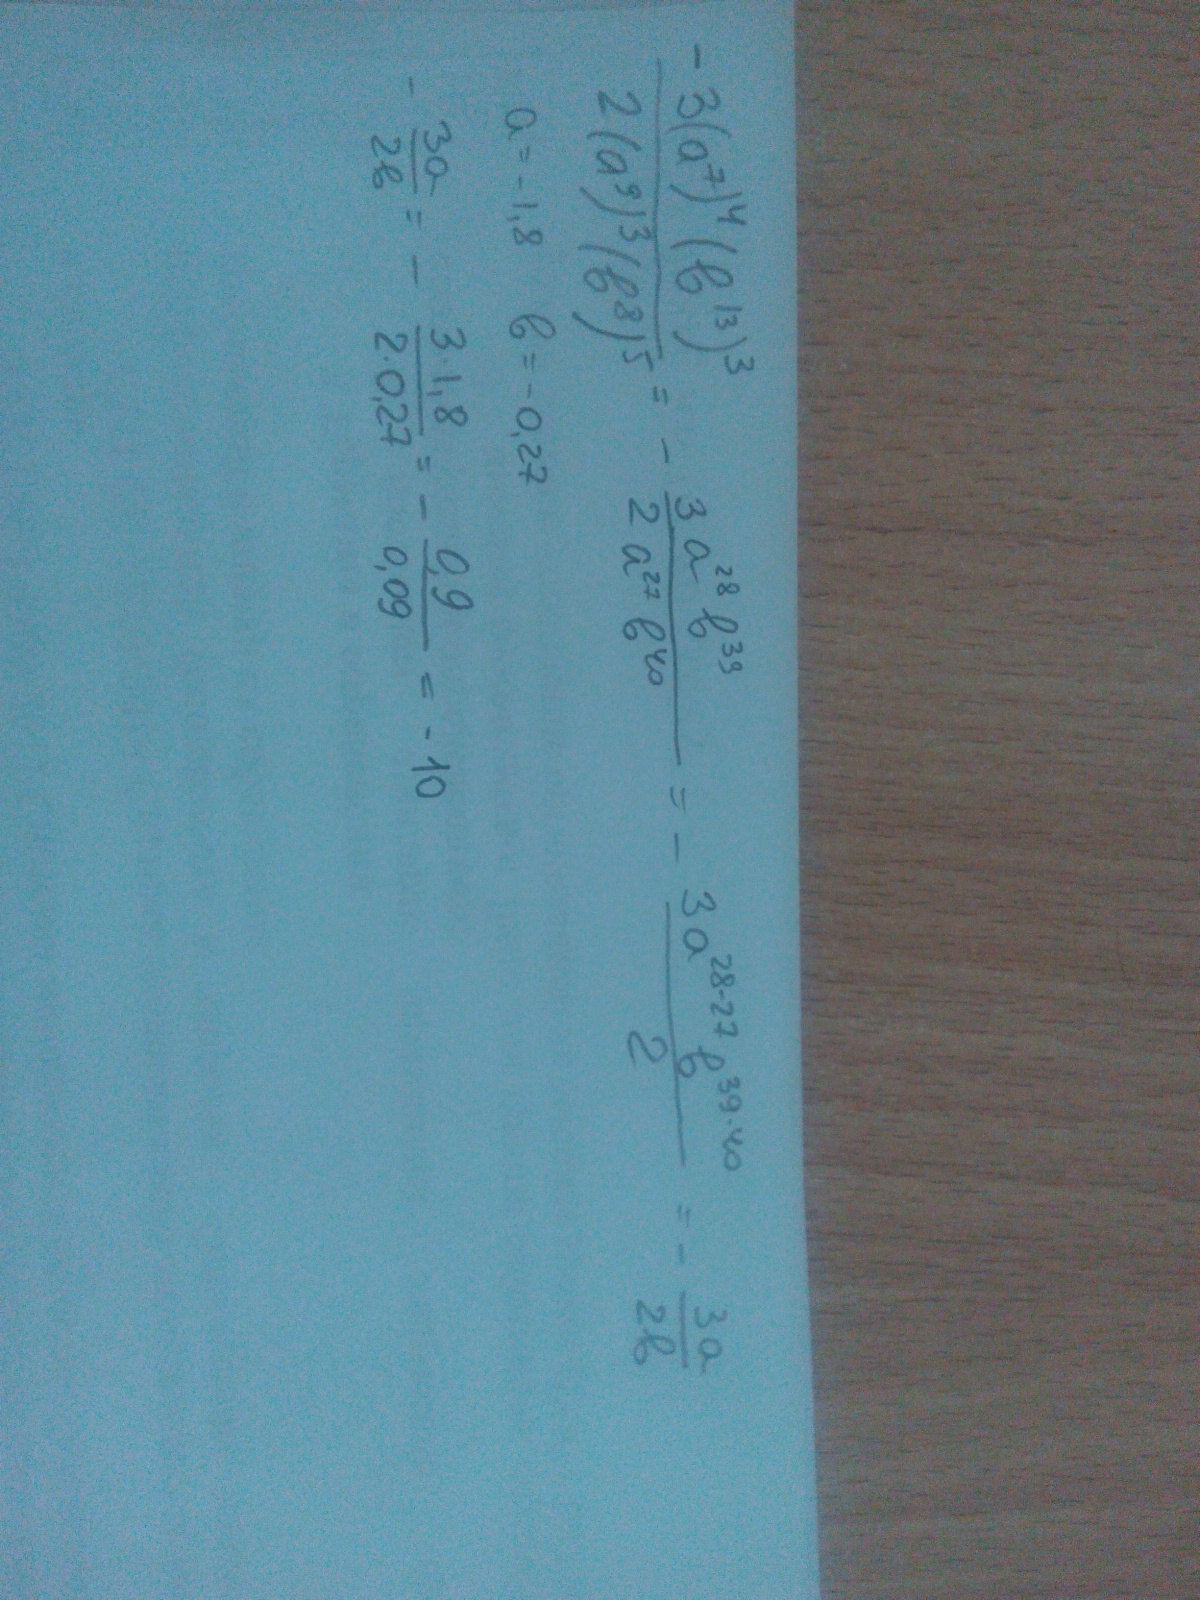 -3(a⁷)⁴(b¹³)³ / 2(a⁹)³(b⁸)⁵ = - 3a²⁸b³⁹ / 2a²⁷b⁴⁰ = - 3a²⁸⁻²⁷b³⁹⁻⁴⁰ / 2 = - 3a / 2b
a = -1,8 b = -0,27
- 3a / 2b = - 3·1,8 / 2·0,27 = - 0,9 / 0,09 = -10